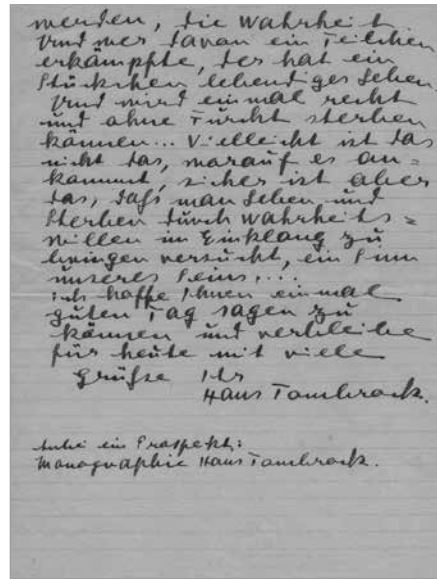 werden, die Wahrheit
Und wer davon ein Teilchen
erkämpfte, der hat ein
Stückchen lebendiges Leben.
Und wird einmal recht
und ohne Furcht sterben
können... Vielleicht ist das
nicht das, worauf es an=
kommt, sicher ist aber
das, daß man Leben und
Sterben durch Wahrheits=
willen im Einklang zu
bringen versucht, ein Sinn
unseres Seins....
Ich hoffe Ihnen einmal
guten Tag sagen zu
können und verbleibe
für heute mit viele
Grüße Ihr
Hans Tombrock.
ein Prospekt:
Monographie Hans Tombrock.